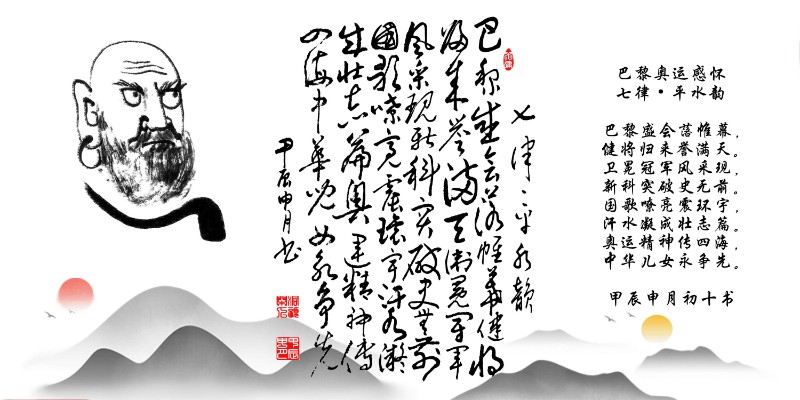 七律 平水韵
巴黎盛会落帷幕健将
归来誉满天卫冕冠军
风采现新科突破史無前
國歌嘹亮震环宇汗水凝
成壮志篇奥运精神传
四海中華儿女永争先
甲辰申月书
巴黎奥运感怀
七律·平水韵
巴黎盛会落惟幕，
健将归来誉满天。
卫冕冠军风采现，
新科突破史无前。
国歌嘹亮震环宇，
汗水凝成壮志篇。
奥运精神传四海，
中华儿女永争先。
甲辰申月初十书